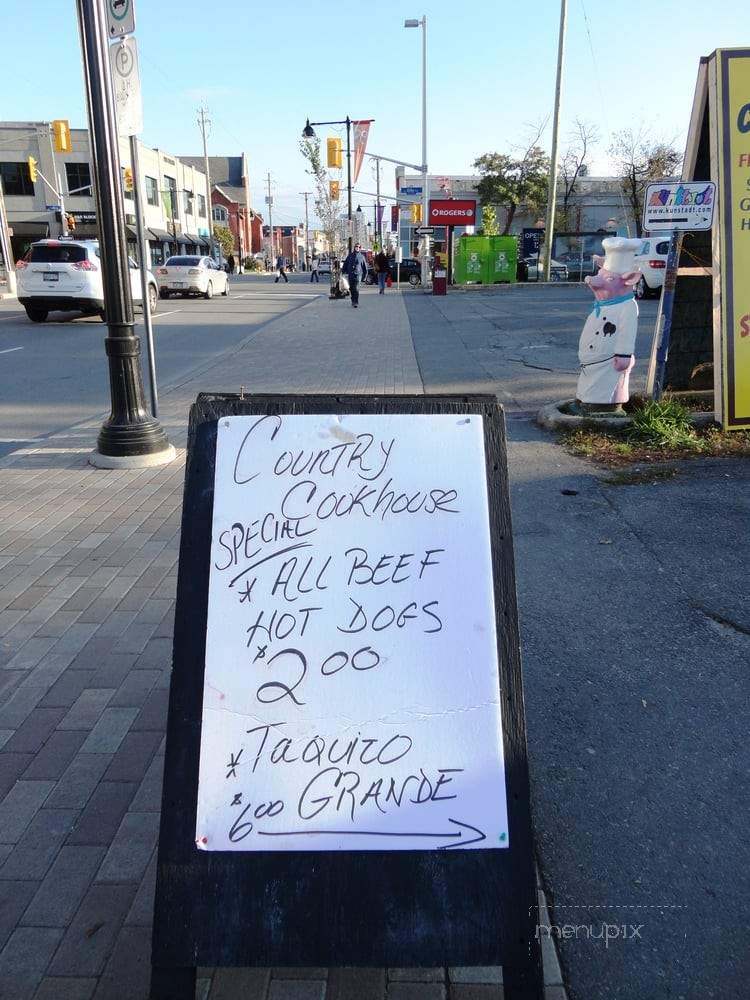 Country
Cookhouse
SPECIAL
* ALL BEEF
HOT DOGS
$2.00
* TaQuito
$6.00 GRANDE
ROGERS
KUNSTADT
www.kunstadt.com
P
OPEN
menupix